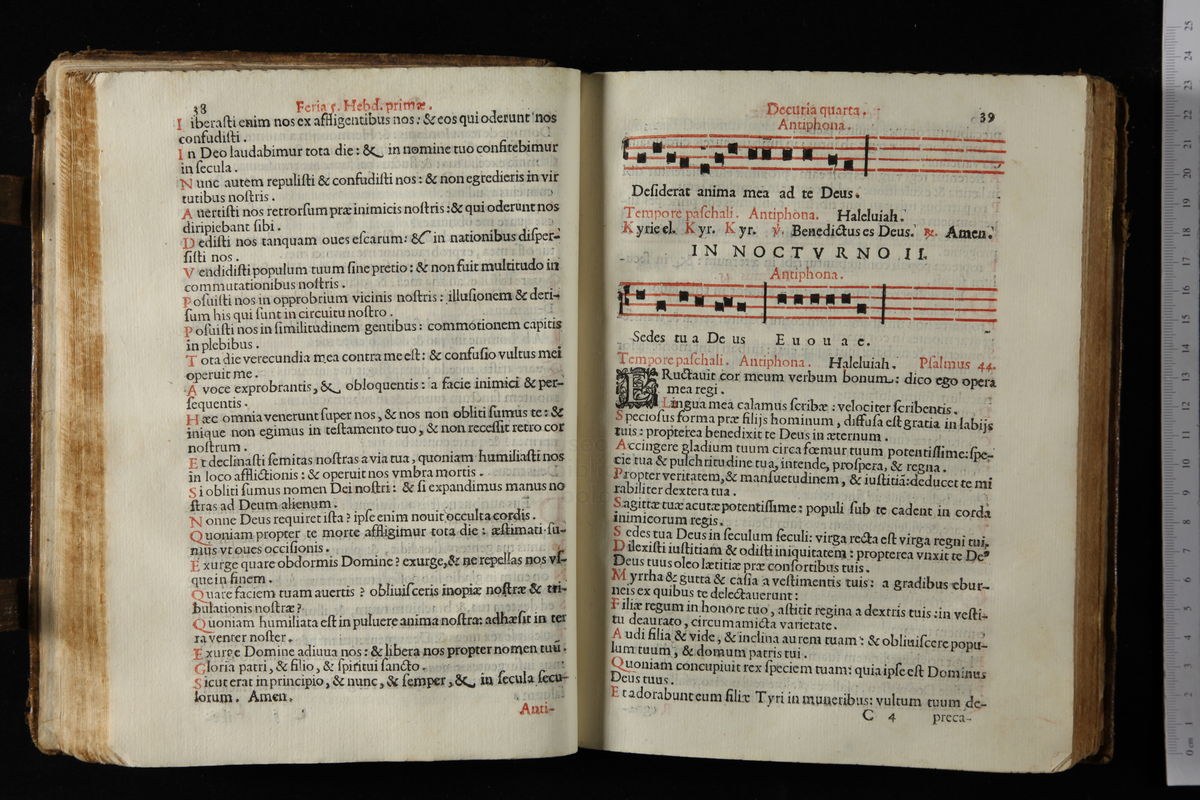 38
Feria 5. Hebd. primæ.
L iberaſti enim nos ex affligentibus nos: & eos qui oderunt nos
confudiſti.
I n Deo laudabimur tota die: & in nomine tuo confitebimur
in ſecula.
N unc autem repuliſti & confudiſti nos: & non egredieris in vir
tutibus noſtris.
A uertiſti nos retrorſum præ inimicis noſtris: & qui oderunt nos
diripiebant ſibi.
D ediſti nos tanquam oues eſcarum: & in nationibus diſper-
ſiſti nos.
V endidiſti populum tuum ſine pretio: & non fuit multitudo in
commutationibus noſtris.
P oſuiſti nos in opprobrium vicinis noſtris: illuſionem & deri-
ſum his qui ſunt in circuitu noſtro.
P oſuiſti nos in ſimilitudinem gentibus: commotionem capitis
in plebibus.
T ota die verecundia mea contra me eſt: & confuſio vultus mei
operuit me.
A voce exprobrantis, & obloquentis: a facie inimici & per-
ſequentis.
H æc omnia venerunt ſuper nos, & nos non obliti ſumus te: &
inique non egimus in teſtamento tuo, & non receſſit retro cor
noſtrum.
E t declinaſti ſemitas noſtras a via tua, quoniam humiliaſti nos
in loco afflictionis: & operuit nos vmbra mortis.
S i obliti ſumus nomen Dei noſtri: & ſi expandimus manus no
ſtras ad Deum alienum.
N onne Deus requiret iſta? ipſe enim nouit occulta cordis.
Q uoniam propter te morte affligimur tota die: æſtimati ſu-
mus vt oues occiſionis.
E xurge quare obdormis Domine? exurge, & ne repellas nos vſ-
que in finem.
Q uare faciem tuam auertis? obliuiſceris inopiæ noſtræ & tri-
bulationis noſtræ?
Q uoniam humiliata eſt in puluere anima noſtra: adhæſit in ter
ra venter noſter.
E xurge Domine adiuua nos: & libera nos propter nomen tuũ.
G loria patri, & filio, & ſpiritui ſancto.
S icut erat in principio, & nunc, & ſemper, & in ſecula ſecu-
lorum. Amen.
Anti-
Decuria quarta.
39
Antiphona.
Deſiderat anima mea ad te Deus.
Tempore paſchali. Antiphona. Haleluiah.
K yrie el. K yr. K yr. ℣. Benedictus es Deus. ℟. Amen.
IN NOCTVRNO II.
Antiphona.
Sedes tu a De us E u o u a e.
Tempore paſchali. Antiphona. Haleluiah. Pſalmus 44.
E Ructauit cor meum verbum bonum: dico ego opera
mea regi.
Lingua mea calamus ſcribæ: velociter ſcribentis.
S pecioſus forma præ filijs hominum, diffuſa eſt gratia in labijs
tuis: propterea benedixit te Deus in æternum.
A ccingere gladium tuum circa fœmur tuum potentiſſime: ſpe-
cie tua & pulchritudine tua, intende, proſpera, & regna.
P ropter veritatem, & manſuetudinem, & iuſtitiã: deducet te mi
rabiliter dextera tua.
S agittæ tuæ acutæ potentiſſime: populi ſub te cadent in corda
inimicorum regis.
S edes tua Deus in ſeculum ſeculi: virga recta eſt virga regni tui.
D ilexiſti iuſtitiam & odiſti iniquitatem: propterea vnxit te Deꝰ
Deus tuus oleo lætitiæ præ conſortibus tuis.
M yrrha & gutta & caſia a veſtimentis tuis: a gradibus ebur-
neis ex quibus te delectauerunt:
F iliæ regum in honore tuo, aſtitit regina a dextris tuis: in veſti-
tu deaurato, circumamicta varietate.
A udi filia & vide, & inclina aurem tuam: & obliuiſcere popu-
lum tuum, & domum patris tui.
Q uoniam concupiuit rex ſpeciem tuam: quia ipſe eſt Dominus
Deus tuus.
E t adorabunt eum filiæ Tyri in muneribus: vultum tuum de-
C 4 preca-